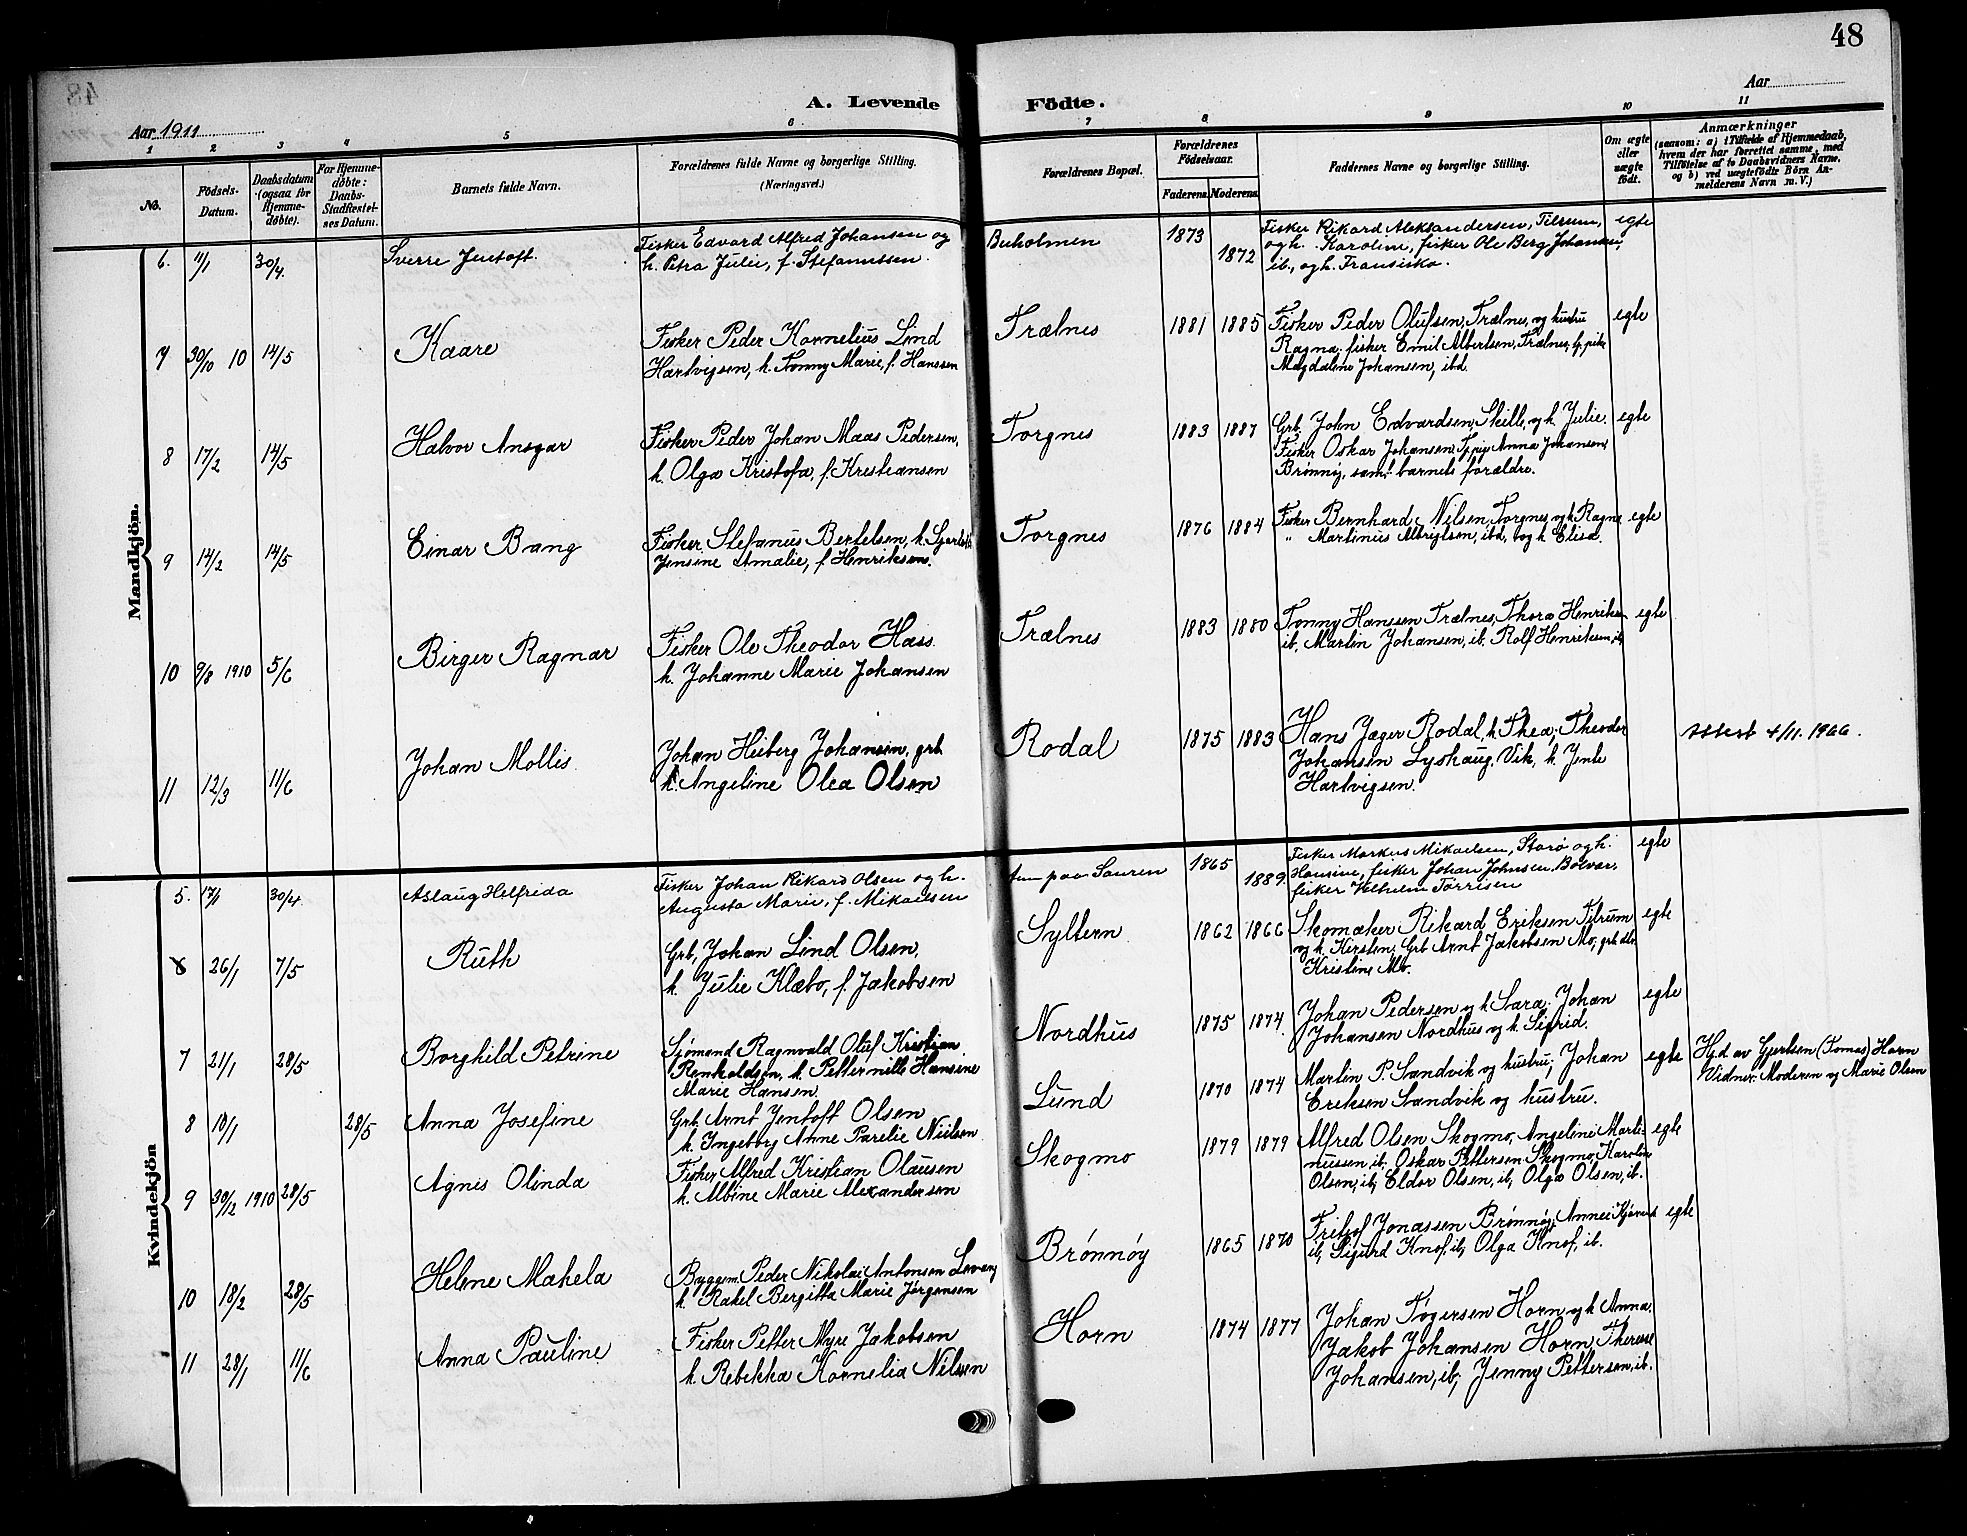 48
A. Levende Födte.
Aar 1911
Aar
1 2 3 4 5 6 7 8 9 10 11
No.
Födsels-Datum.
Daabsdatum (ogsaa for Hjemmedöbte).
For Hjemmedöbte: Daabs-Stadfestelses Datum.
Barnets fulde Navn.
Forældrenes fulde Navne og borgerlige Stilling.
(Næringsvei.)
Forældrenes Bopæl.
Forældrenes Födselsaar.
Faderens. Moderens.
Faddernes Navne og borgerlige Stilling.
Om ægte eller uægte født.
Anmærkninger
(saasom: a) i Tilfælde af Hjemmedaab, hvem der har forrettet samme, med Tilföielse af to Daabsvidners Navne, og b) ved uægtefödte Börn Anmelderens Navn m. V.)
Mandkjön.
6. 11/1 30/4. Sverre Jentoft.
Fisker Edvard Alfred Johansen og
h. Petra Julie, f. Stefanussen.
Buholmen 1873 1872
Fisker Rikard Aleksandersen, Tilrum,
og h. Karoline, fisker Ole Berg Johansen,
ib., og h. Fransiska.
egte
7 30/10 10 14/5 Kaare
Fisker Peder Kornelius Lind
Hartvigsen, h. Fonny Marie, f. Hanssen
Trælnes 1881 1885
Fisker Peder Olufsen, Trælnes, og hustru
Ragna, fisker Emil Albertsen, Trælnes,
Magdalene Johansen, ibd.
egte
8 17/2 14/5 Halvor Ansgar
Fisker Peder Johan Maas Pedersen,
h. Olga Kristofa, f. Kristiansen
Torgnes 1883 1887
Grb. John Edvardsen, Skille, og h. Julie.
Fisker Oskar Johansen, Anna Johansen,
Brønnøy, samt barnets forældre.
egte
9 14/2 14/5 Einar Bang
Fisker Stefanus Bertelsen, h.
Jensine Amalie, f. Henriksen.
Torgnes 1876 1884
Fisker Bernhard Nilsen, Torgnes, og h. Ragna
" Martinus Albrigtsen, ibd, og h. Elisa.
egte
10 9/8 1910 5/6 Birger Ragnar
Fisker Ole Theodor Hass.
h. Johanne Marie Johansen
Trælnes 1883 1880
Fonny Hanssen Trælnes, Thora Henriksen
ib, Martin Johansen, ib, Rolf Henriksen, ib
egte
11 12/3 11/6 Johan Mollis.
Johan Heiberg Johansen, grb.
h. Angeline Olea Olsen
Rodal 1875 1883
Hans Jæger Rodal, h. Thea, Theodor
Johansen Lyshaug, Vik, h. Jente
Hartvigsen.
Attest 4/11. 1966.
Kvindekjön
5. 17/1 30/4. Aslaug Helfrida
Fisker Johan Rikard Olsen og h.
Augusta Marie, f. Mikaelsen
paa Sauren 1865 1889.
Fisker Markus Mikaelsen, Storø og h.
Hansine, fisker Johan Johnsen, Bolvær,
fisker Vilhelm Törrisen
egte
6 26/1 7/5 Ruth
Grb, Johan Lind Olsen,
h. Julie Klæbo, f. Jakobsen
Syltern 1862 1866
Skomaker Rikard Eriksen Tilrum
og h. Kirsten, Grb Arnt Jakobsen Mo, grb dtr
Kristine Mo.
egte
7 21/1 28/5 Borghild Petrine
Sjömand Ragnvald Oluf Kristian
Renholdsen, h. Petternille Hansine
Marie Hansen.
Nordhus 1875 1874
Johan Pedersen og h. Sara. Johan
Johansen Nordhus og h. Sigrid.
egte
8 10/1 28/5 Anna Josefine
Grb. Arnt Jentoft Olsen
h. Ingeborg Anne Parelie Nilsen
Lund 1870 1874
Martin P. Sandvik og hustru, Johan
Eriksen Sandvik og hustru.
egte
Hjd av Gjertsen (Tomas) Horn
Vidner: Moderen og Marie Olsen
9 30/12 1910 28/5 Agnis Olinda
Fisker Alfred Kristian Olausen
h. Albine Marie Alexandersen
Skogmo 1879 1879
Alfred Olsen Skogmo, Angeline Marti-
nussen, ib, Oskar Pettersen Skogmo, Karoline
Olsen, ib, Eldor Olsen, ib, Olga Olsen, ib.
egte
10 18/2 28/5 Helene Makela
Byggem. Peder Nikolai Antonsen Levang
h. Rakel Bergitta Marie Jørgensen
Brønnøy 1865 1870
Fritjof Jonassen Brønnøy,
ib, Sigurd Knof, ib, Olga Knof, ib.
egte
11 28/1 11/6 Anna Pauline
Fisker Petter Myre Jakobsen
h. Rebekka Kornelia Nilsen
Horn 1874 1877
Johan Togersen Horn og h. Anna,
Jakob Johansen Horn, Therese
Johansen, ib, Jenny Pettersen, ib.